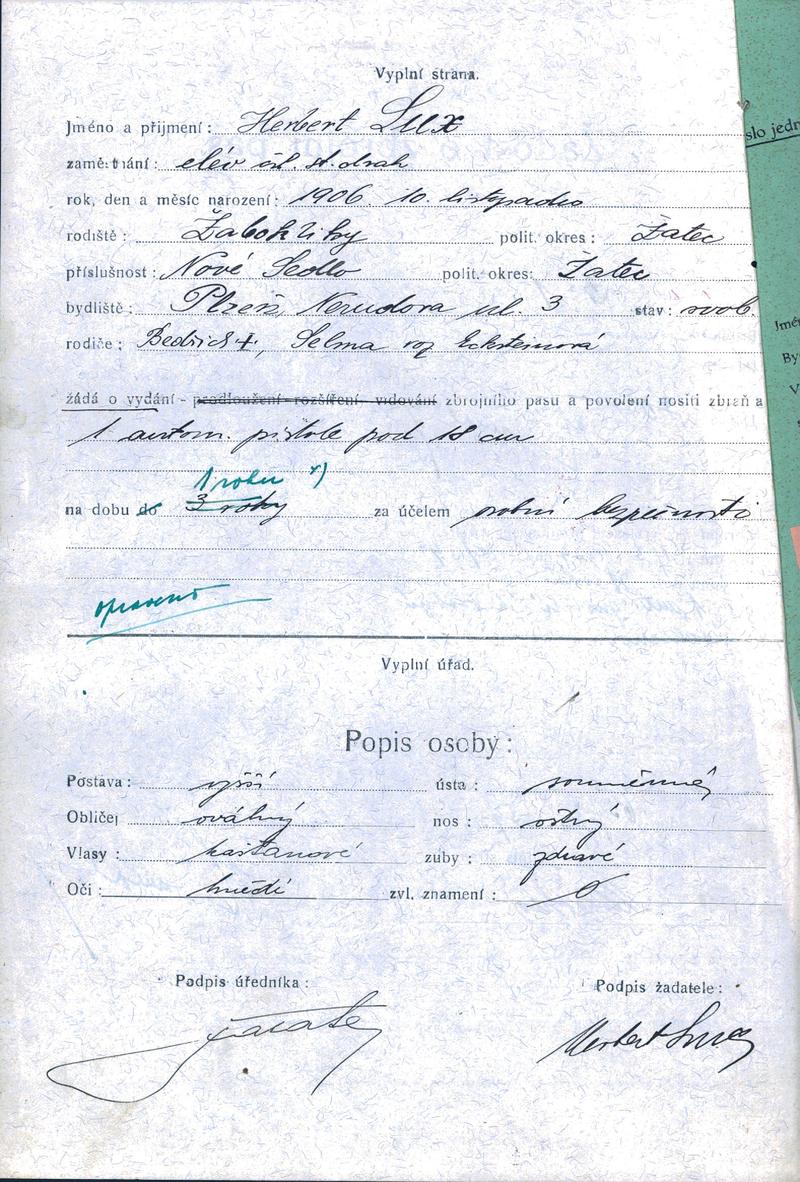 Vyplní strana.
Jméno a příjmení: Herbert Lux
zaměstnání: elév čsl. st. drah
rok, den a měsíc narození: 1906. 10. listopadu
rodiště: Žabokliky polit. okres: Žatec
příslušnost: Nové Sedlo polit. okres: Žatec
bydliště: Plzeň, Nerudova ul. 3 stav: svob.
rodiče: Bedřich †, Selma roz Ecksteinová
žádá o vydání - prodloužení - rozšíření - vidování zbrojního pasu a povolení nositi zbraň a
1 autom. pistole pod 18 cm
1 roku ×)
na dobu do 3 roky za účelem osobní bezpečnosti
opraveno
Vyplní úřad.
Popis osoby:
Postava: vyšší ústa: souměrné
Obličej oválný nos: ostrý
Vlasy: kaštanové zuby: zdravé
Oči: hnědé zvl. znamení: 0
Podpis úředníka: Podpis žadatele:
Herbert Lux
slo jedn
Jmé
By
V